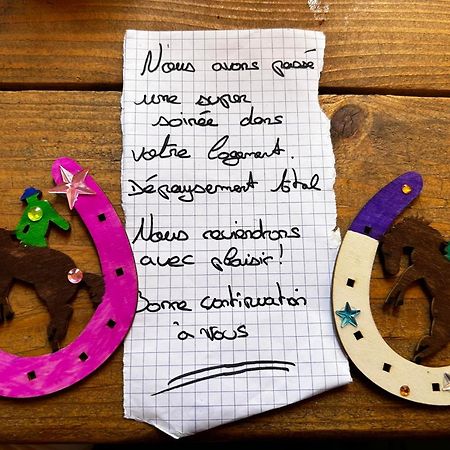 Nous avons passé
une super
soirée dans
votre logement.
Dépaysement total
Nous reviendrons
avec plaisir !
Bonne continuation
à vous